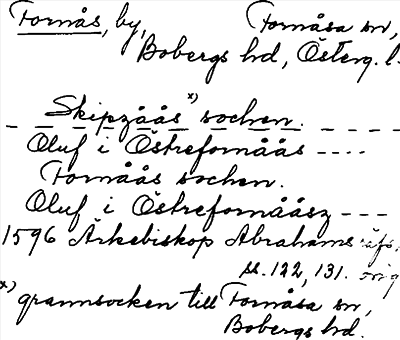 Fornås, by, Fornåsa sn,
Bobergs hd, Österg. l.
Skipzåås x) sochen.
Oluf i Östrefornåås ----
Fornåås sochen.
Oluf i Östrefornååsz ---
1596 Ärkebiskop Abrahams räfs,
ss. 122, 131. orig
x) grannsocken till Fornåsa sn,
Bobergs hd.